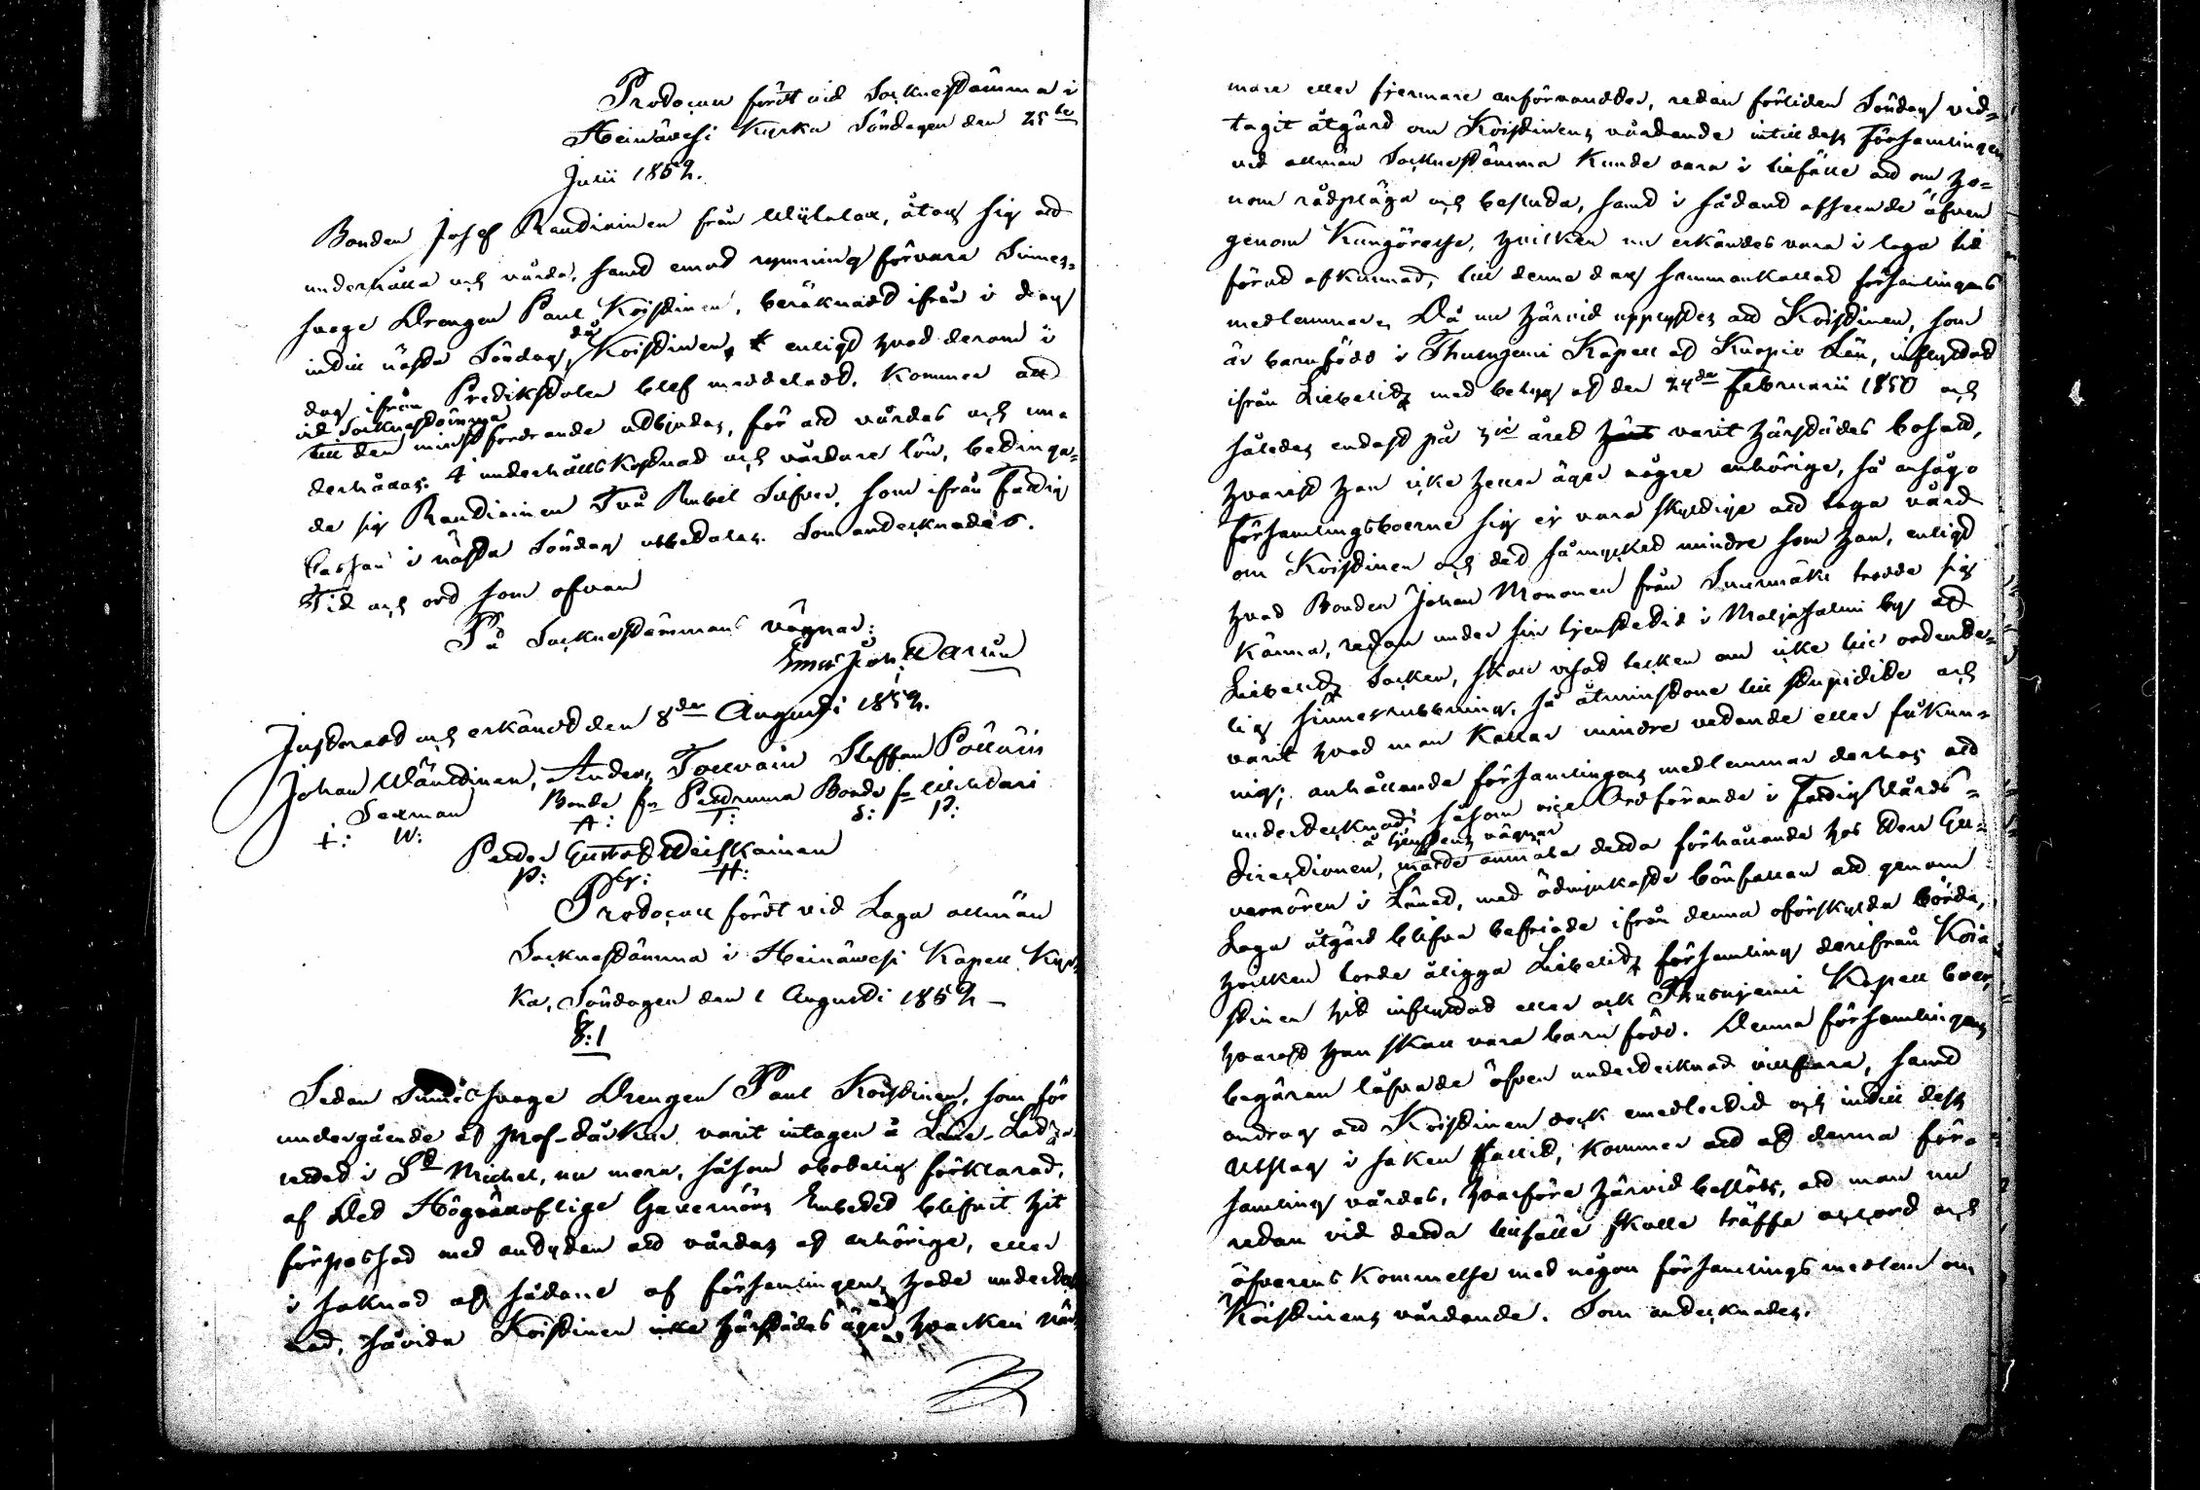 Protocoll fördt vid Socknestämma i
Heinävesi Kyrka Söndagen den 25te
Julii 1852.
Bonden Josef Raudininen från, åtog sig att
underhålla och vårda, samt emot rymning förvara Sinnes-
svage Drengen Paul Koistinen, beräknadt ifrån i dag
intill nästa Söndag, då Koistinen, enligt hvad derom i
dag ifrån Predikstolen blef meddeladt, kommer att
vid Socknestämma
till den minst fordrande utbjudas, för att vårdas och un-
derhållas. I underhålls kostnad och vårdare lön, betinga-
de sig Raudininen Två Rubel Silfver, som ifrån Fattig
Cassan i nästa Söndag utbetalas. Som antecknades.
Tid och ort som ofvan
På Socknestämmans vägnar:
Joh.
Justeradt och erkändt den 8de Augusti 1852.
Johan Väntinen, Anders Tolvain Staffan Pölläin
Sexman Bonde fr Petruma Bonde fr
I: W: A: T: S: P:
Petter Gustaf Heiskainen
P: G: H:
Protocoll fördt vid Laga allmän
Socknestämma i Heinävesi Kapell Kyr-
ka, Söndagen den 1 Augusti 1852
§: 1
Sedan Sinnessvage Drengen Paul Koistinen, som för
undergående af prof-dårkur varit intagen å Läns-Laza-
rettet i St Michel, nu mera, såsom obotelig förklarad,
af Det Högvälloflige Gouvernörs Embetet blifvit hit
förpassad med antyden att vårdas af anhörige, eller
i saknad af sådane af församlingen, hade underteck-
nad, såvida Koistinen icke härstädes äger hvarken när-
mare eller fjermare anförvandter, redan förliden Söndag vid-
tagit åtgärd om Koistinens vårdande intill dess Församlingen
vid allmän Socknestämma kunde vara i tillfälle att om ho-
nom rådpläga och besluta, samt i sådant afseende äfven
genom Kungörelse, hvilken nu erkändes vara i laga tid
förut afkunnad, till denna dag sammankallad församlingens
medlemmar. Då nu härvid upplystes att Koistinen, som
är barnfödd i Thusnjemi Kapell af Kuopio Län, inflyttad
ifrån Libelits med betyg af den 24de Februarii 1850 och
således endast på 3ie året varit härstädes bosatt,
hvarest han icke heller äger någre anhörige, så ansågo
Församlingsboerne sig ej vara skyldige att taga vård
om Koistinen och det så mycket mindre som han, enligt
hvad Bonden Johan Mononen från Suurmäki trodde sig
känna, redan under sin tjenstetid i Maljasalmi by af
Libelits Socken, skall visat tecken om icke till ordente-
lig sinnesrubbning, så åtminstone till stupiditet och
varit hvad man kallar mindre vetande eller fåkun-
nig; anhållande församlingens medlemmar derhos att
undertecknad såsom vice Ordförande i Fattigvårds-
å hennes vägnar
Directionen, måtte anmäla detta förhållande hos Herr Gu-
vernören i Länet, med ödmjukaste bönfallan att genom
Laga åtgärd blifva befriade ifrån denna oförskylda börda,
hvilken torde åligga Libelits församling derifrån Koi-
stinen hit inflyttat eller ock Thusnjemi Kapell boer,
hvarest han skall vara barnfödd. Denna församlingens
begäran lofvade äfven undertecknad villfara, samt
androg att Koistinen dock emedlertid och intill dess
Utslag i saken fallit, kommer att af denna för-
samling vårdas, hvarföre härvid beslöts, att man nu
redan vid detta tillfälle skulle träffa accord och
öfverens kommelse med någon församlings medlem om
Koistinens vårdande. Som antecknades.